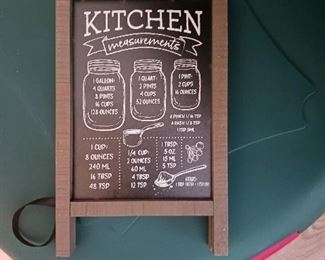 KITCHEN
measurements
1 GALLON:
4 QUARTS
8 PINTS
16 CUPS
128 OUNCES
1 QUART:
2 PINTS
4 CUPS
32 OUNCES
1 PINT:
2 CUPS
16 OUNCES
A PINCH 1/16 TSP
A DASH 1/8 TSP
1 TSP 5ML
1 CUP:
8 OUNCES
240 ML
16 TBSP
48 TSP
1/4 CUP:
2 OUNCES
60 ML
4 TBSP
12 TSP
1 TBSP:
.5 OZ
15 ML
3 TSP